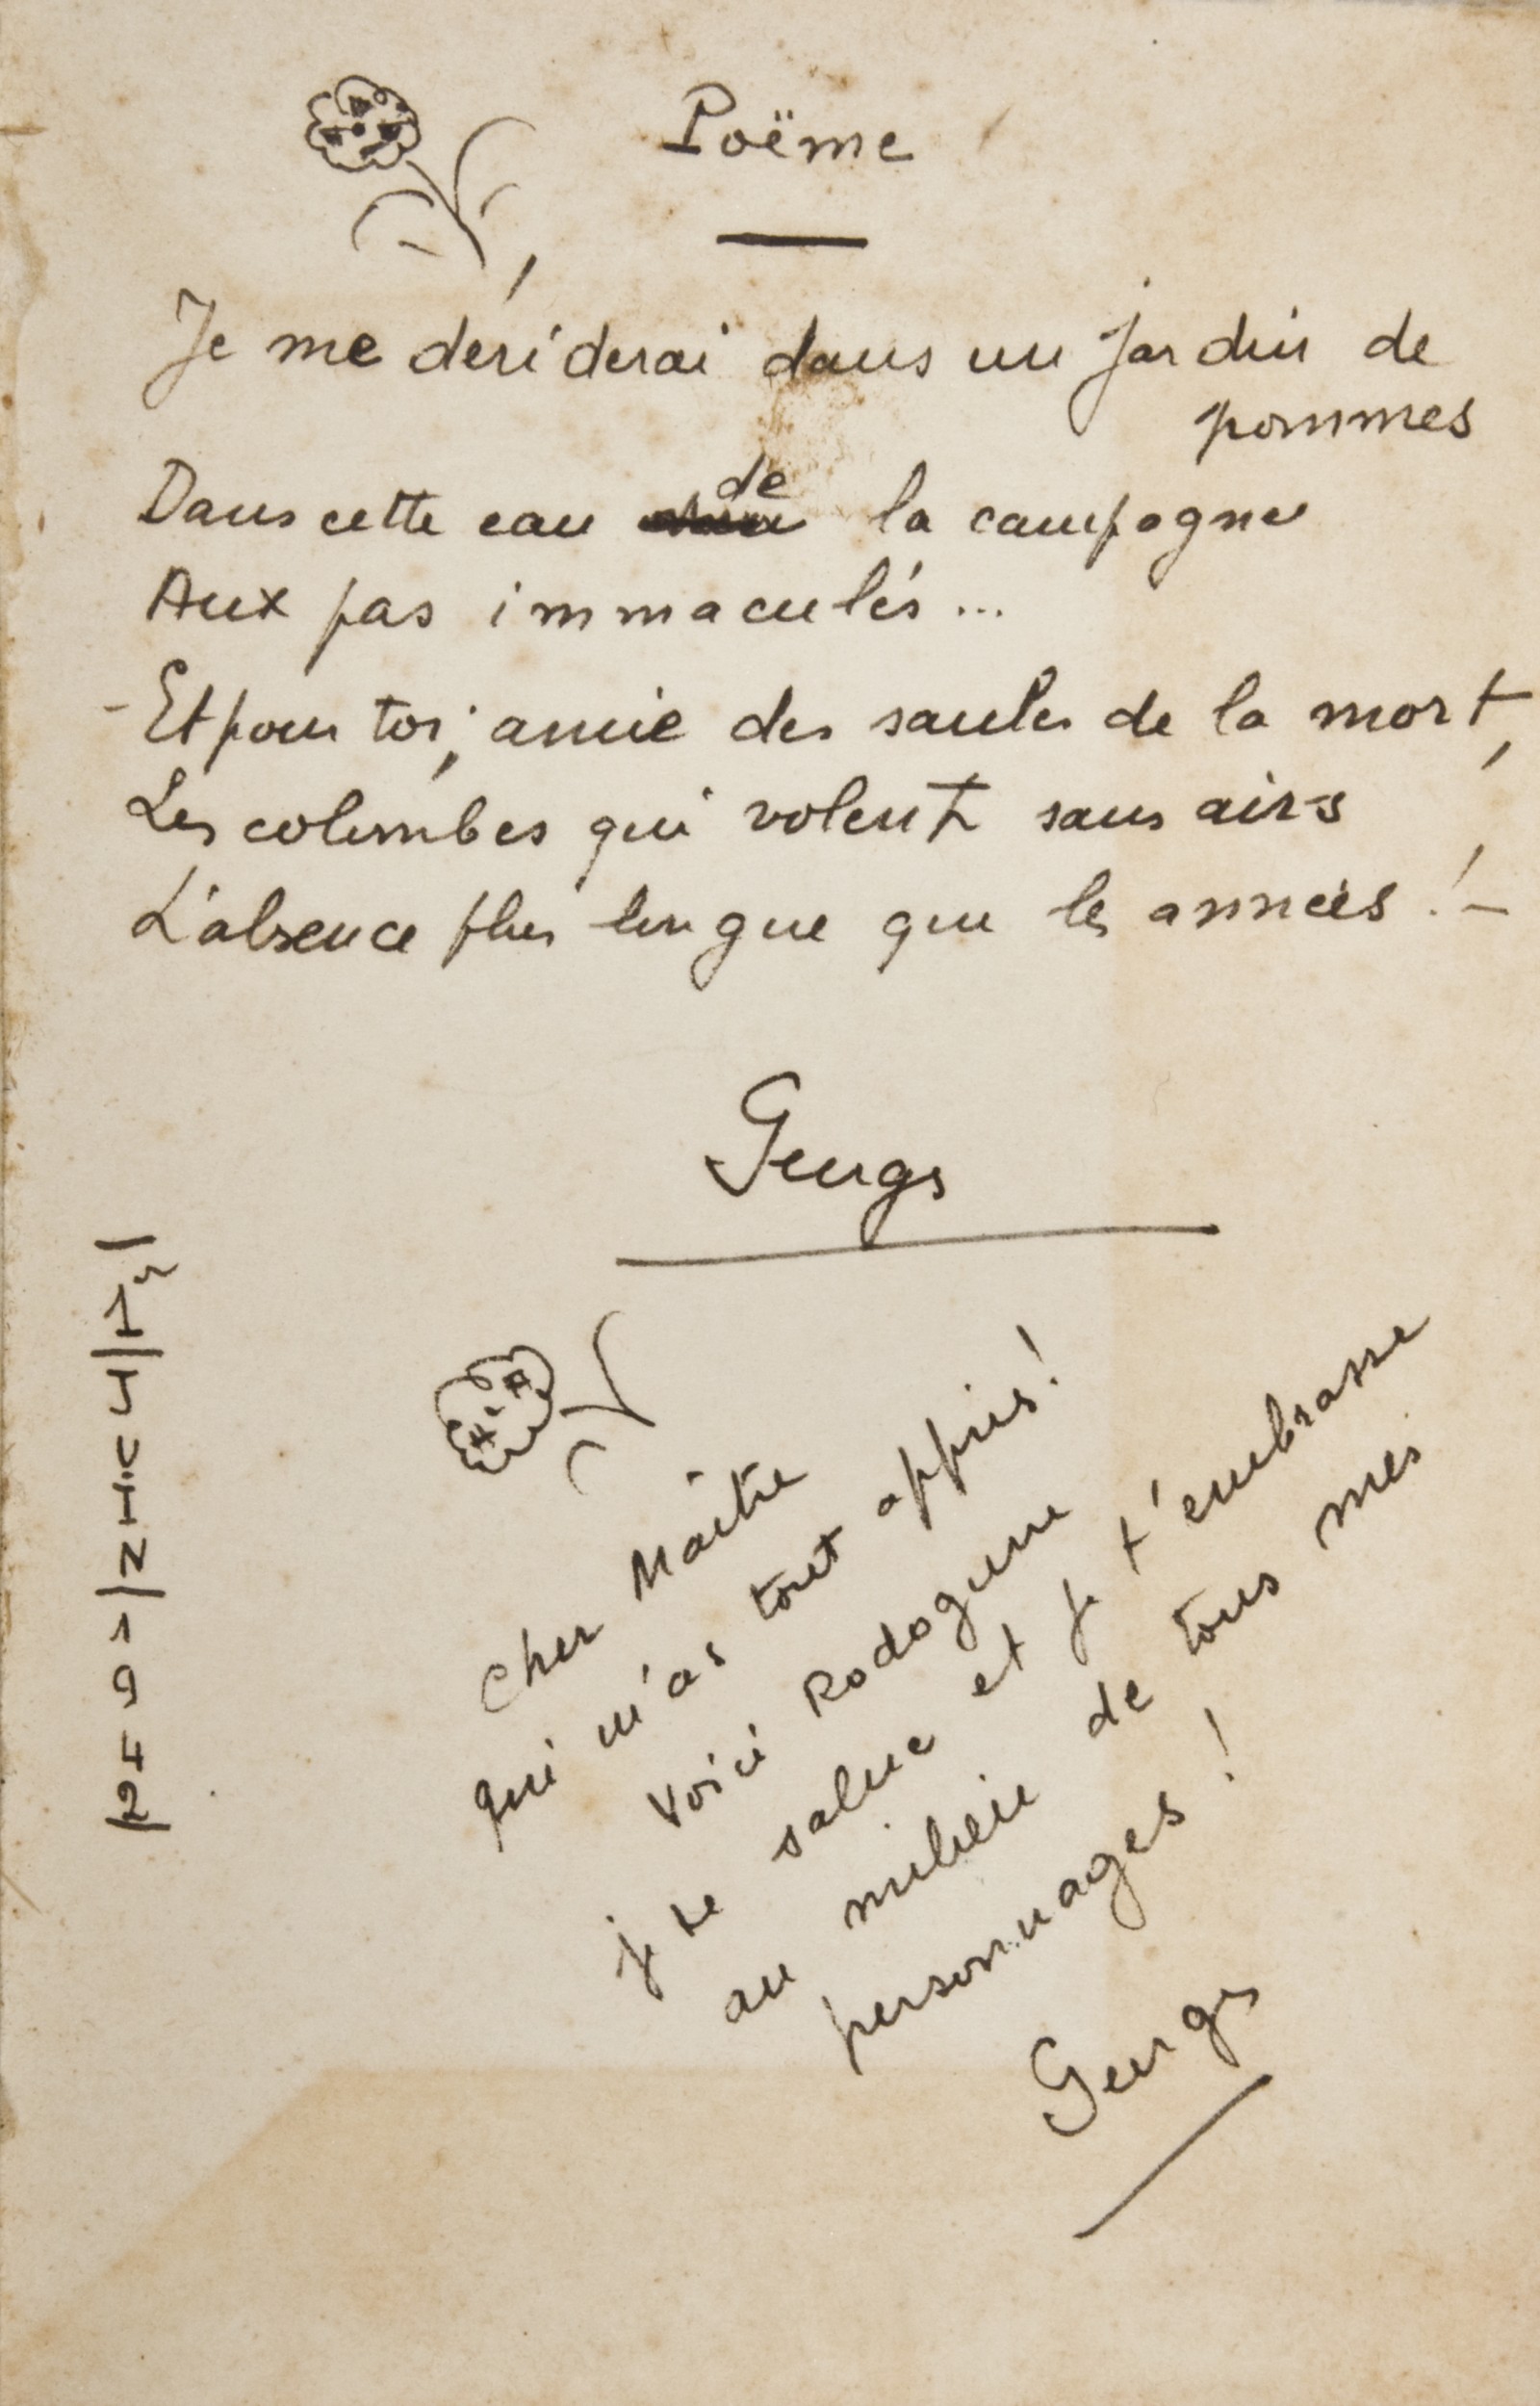 Poëme
Je me dériderai dans un jardin de
pommes
Dans cette eau de la campagne
Aux pas immaculés...
- Et pour toi, amie des saules de la mort,
Les colombes qui volent sans airs
L'absence plus longue que les années ! -
Georges
Cher Maître
qui m'as tout appris !
Voici Rodogune
je te salue et je t'embrasse
au milieu de tous mes
personnages !
Georges